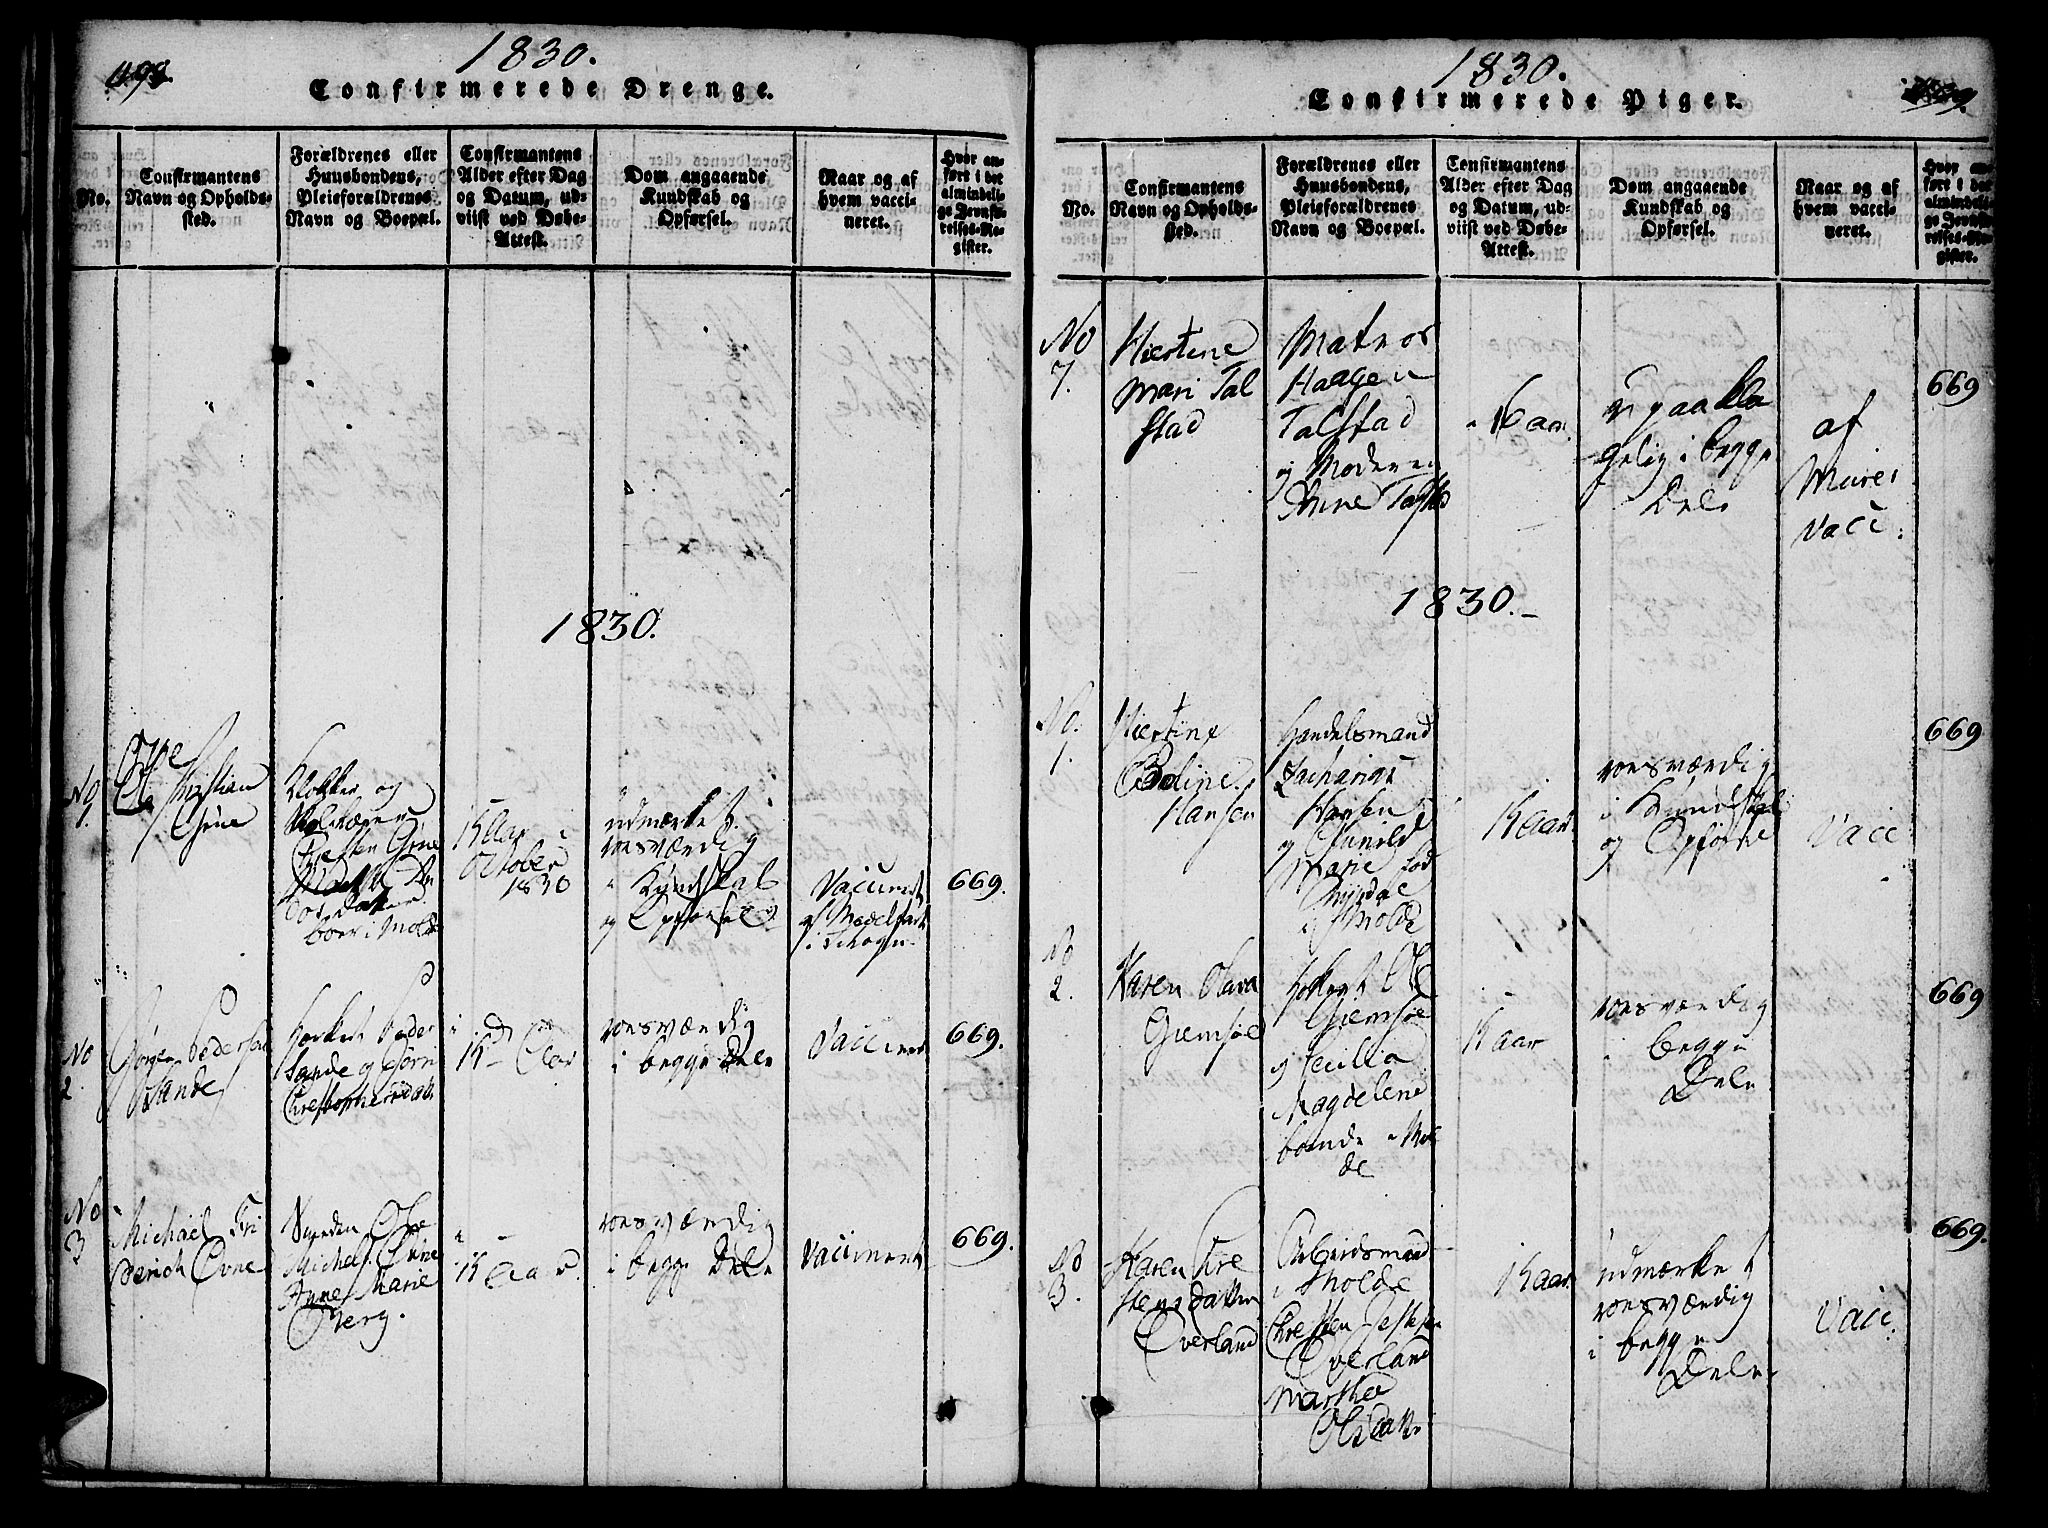 1830.
Confirmerede Drenge.
No.
Confirmantens
Navn og Opholds-
sted.
Forældrenes eller
Huusbondens,
Pleieforældrenes
Navn og Boepæl.
Confirmantens
Alder efter Dag
og Datum, ud-
viist ved Døbe-
Attest.
Dom angaaende
Kundskab og
Opførsel.
Naar og af
hvem vacci-
neret.
Hvor an-
ført i det
almindeli-
ge Jevnfø-
relses-Re-
gister.
1830.
No
1.
Ole Christian
Klokker og
October
1830
udmærket
roesværdig
i Kundskab
og Opførsel
Vaccineret
669.
No
2
Jørgen Pedersen
Sande
Sande og
15 Aar
roesværdig
i begge Dele
Vaccineret
669.
No
3
Michael Fri
derich Øvne
Michel Øvne
Anne Marie
Berg.
15 Aar
roesværdig
i begge Dele
Vaccineret
669.
1830.
Confirmerede Piger.
No.
Confirmantens
Navn og Opholds-
sted.
Forældrenes eller
Huusbondens,
Pleieforældrenes
Navn og Boepæl.
Confirmantens
Alder efter Dag
og Datum, ud-
viist ved Døbe-
Attest.
Dom angaaende
Kundskab og
Opførsel.
Naar og af
hvem vacci-
neret.
Hvor an-
ført i det
almindeli-
ge Jevnfø-
relses-Re-
gister.
No
7.
Kiertine
Mari Tal
stad
Matros
Haagen
Talstad
og Moderen
Anne Talstad
16 aar
upaakla
gelig i begge
Dele
af
Vacc:
669
1830.
No.
1.
Kiertine
Boline
Hansen
Handelsmand
Zacharias
Hansen
og Gunild
Marie
i Molde
15 aar
roesværdig
i Kundskab
og Opførsel
Vacc
669
No
2.
Karen Olava
Giemsøe
Giemsøe
og Cecilia
Magdelene
boende i Mol
de
15 aar
roesværdig
i begge
Dele
669
No
3.
Karen
Overland
Arbeidsmand
i Molde
Overland
Martha
Olsdatter
15 aar
udmærket
roesværdig
i begge
Dele
Vacc.
669.